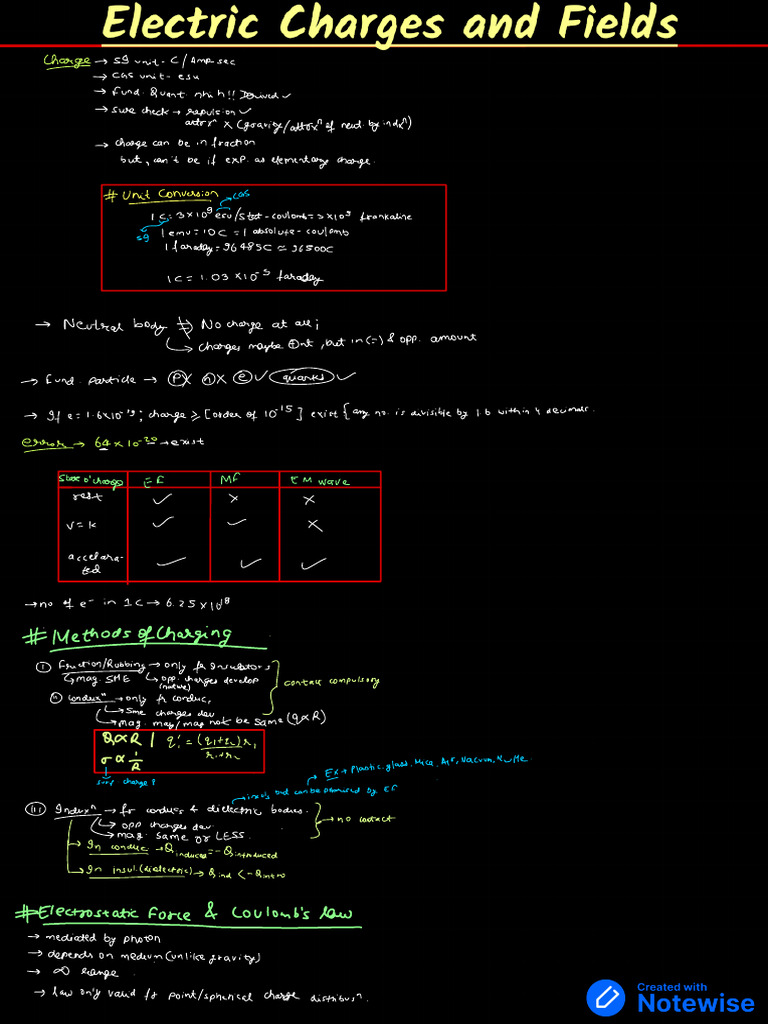 Electric Charges and Fields
Charge → SI unit - C / Amp sec
→ CGS unit - esu
→ Fund. Quant. nhi h!! Derived ✓
→ sure check → repulsion ✓
attrⁿ × (gravity/attrxⁿ of neut. by indxⁿ)
→ charge can be in fraction
but, can't be if exp. as elementary charge.
# Unit Conversion
CGS
1 C = 3×10⁹ esu/stat-coulomb = 3×10⁹ frankline
SI
1 emu = 10C = 1 absolute-coulomb
1 faraday = 96485C ≈ 96500C
1C = 1.03 × 10⁻⁵ faraday
→ Neutral body ⇏ No charge at all;
↳ charges maybe ⊕nt, but in (=) & opp. amount
→ Fund. particle → (P)× (n)× (e)✓ (quarks)✓
→ If e = 1.6×10⁻¹⁹; charge ≥ [order of 10⁻¹⁵] exist { any no. is divisible by 1.6 within 4 decimals.
error → 64 × 10⁻²⁰ → exist
State o' charge EF MF EM wave
rest ✓ × ×
v = k ✓ ✓ ×
accelarated ✓ ✓ ✓
→ no of e⁻ in 1 C → 6.25 × 10¹⁸
# Methods of Charging
(i) Friction/Rubbing → only for Insulators
↳ mag. SAME ↳ opp. charges develop
(nature)
contact compulsory
(ii) conduxⁿ → only for conduc,
↳ Same charges dev
↳ mag. may/may not be same (Q∝R)
Q∝R | q₁' = (q₁+q₂)r₁ / r₁+r₂
σ ∝ 1/R
surf charge?
Ex → Plastic, glass, Mica, Air, Vacuum,
insul. but can be polarised by EF
(iii) Indexⁿ → for conducs & dielectric bodies.
→ no contact
↳ opp charges dev.
↳ mag. same or LESS.
→ In conduc → Q induced = -Q introduced
→ In insul. (dielectric) → Q ind < -Q intro
# Electrostatic Force & Coulomb's law
→ mediated by photon
→ depends on medium (unlike gravity)
→ ∞ range
→ law only valid for point/spherical charge distribusⁿ.
Created with
Notewise